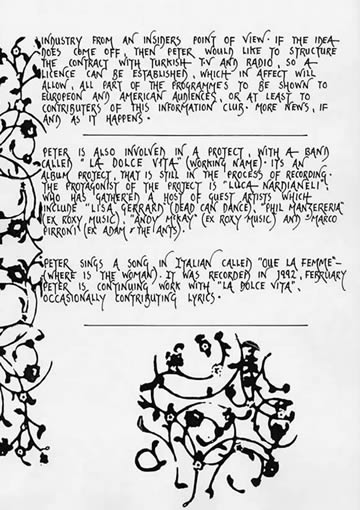 INDUSTRY FROM AN INSIDERS POINT OF VIEW. IF THE IDEA
DOES COME OFF, THEN PETER WOULD LIKE TO STRUCTURE
THE CONTRACT WITH TURKISH T.V AND RADIO, SO A
LICENCE CAN BE ESTABLISHED, WHICH IN AFFECT WILL
ALLOW, ALL PART OF THE PROGRAMME'S TO BE SHOWN TO
EUROPEON AND AMERICAN AUDIENCES, OR AT LEAST TO
CONTRIBUTERS OF THIS INFORMATION CLUB. MORE NEWS, IF
AND AS IT HAPPENS.
PETER IS ALSO INVOLVED IN A PROTECT, WITH A BAND
CALLED "LA DOLCE VITA" (WORKING NAME). IT'S AN
ALBUM PROTECT, THAT IS STILL IN THE PROCESS OF RECORDING.
THE PROTAGONIST OF THE PROTECT IS "LUCA NARDIANELI",
WHO HAS GATHERED A HOST OF GUEST ARTISTS WHICH
INCLUDE "LISA GERRARD (DEAD CAN DANCE), "PHIL MANZERERIA"
(EX ROXY MUSIC), "ANDY McKAY" (EX ROXY MUSIC) AND "MARCO
PIRRONI (EX ADAM & THE ANTS).
PETER SINGS A SONG IN ITALIAN CALLED "QUE LA FEMME" -
(WHERE IS THE WOMAN). IT WAS RECORDED IN 1992, FEBRUARY
PETER IS CONTINUING WORK WITH "LA DOLCE VITA",
OCCASIONALLY CONTRIBUTING LYRICS.